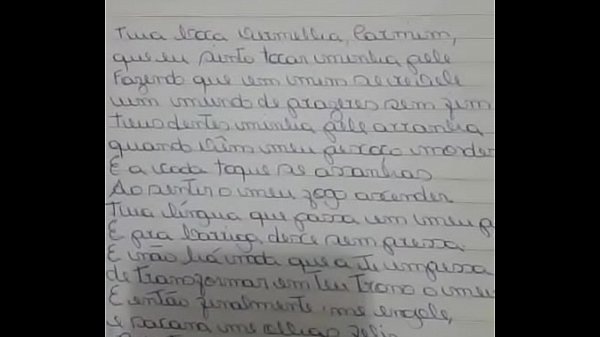 Tua boca vermelha, carmim,
que eu sinto tocar minha pele
Fazendo que em mim se revele
um mundo de prazeres sem fim
Teus dentes minha pele arranha
quando vêm meu pescoço morder
E a cada toque se assanha
Ao sentir o meu fogo acender
Tua língua que passa em meu
E pra barriga desce sem pressa
E não há nada que a te impessa
de transformar em teu trono o meu
E então finalmente me engole,
e sacana me